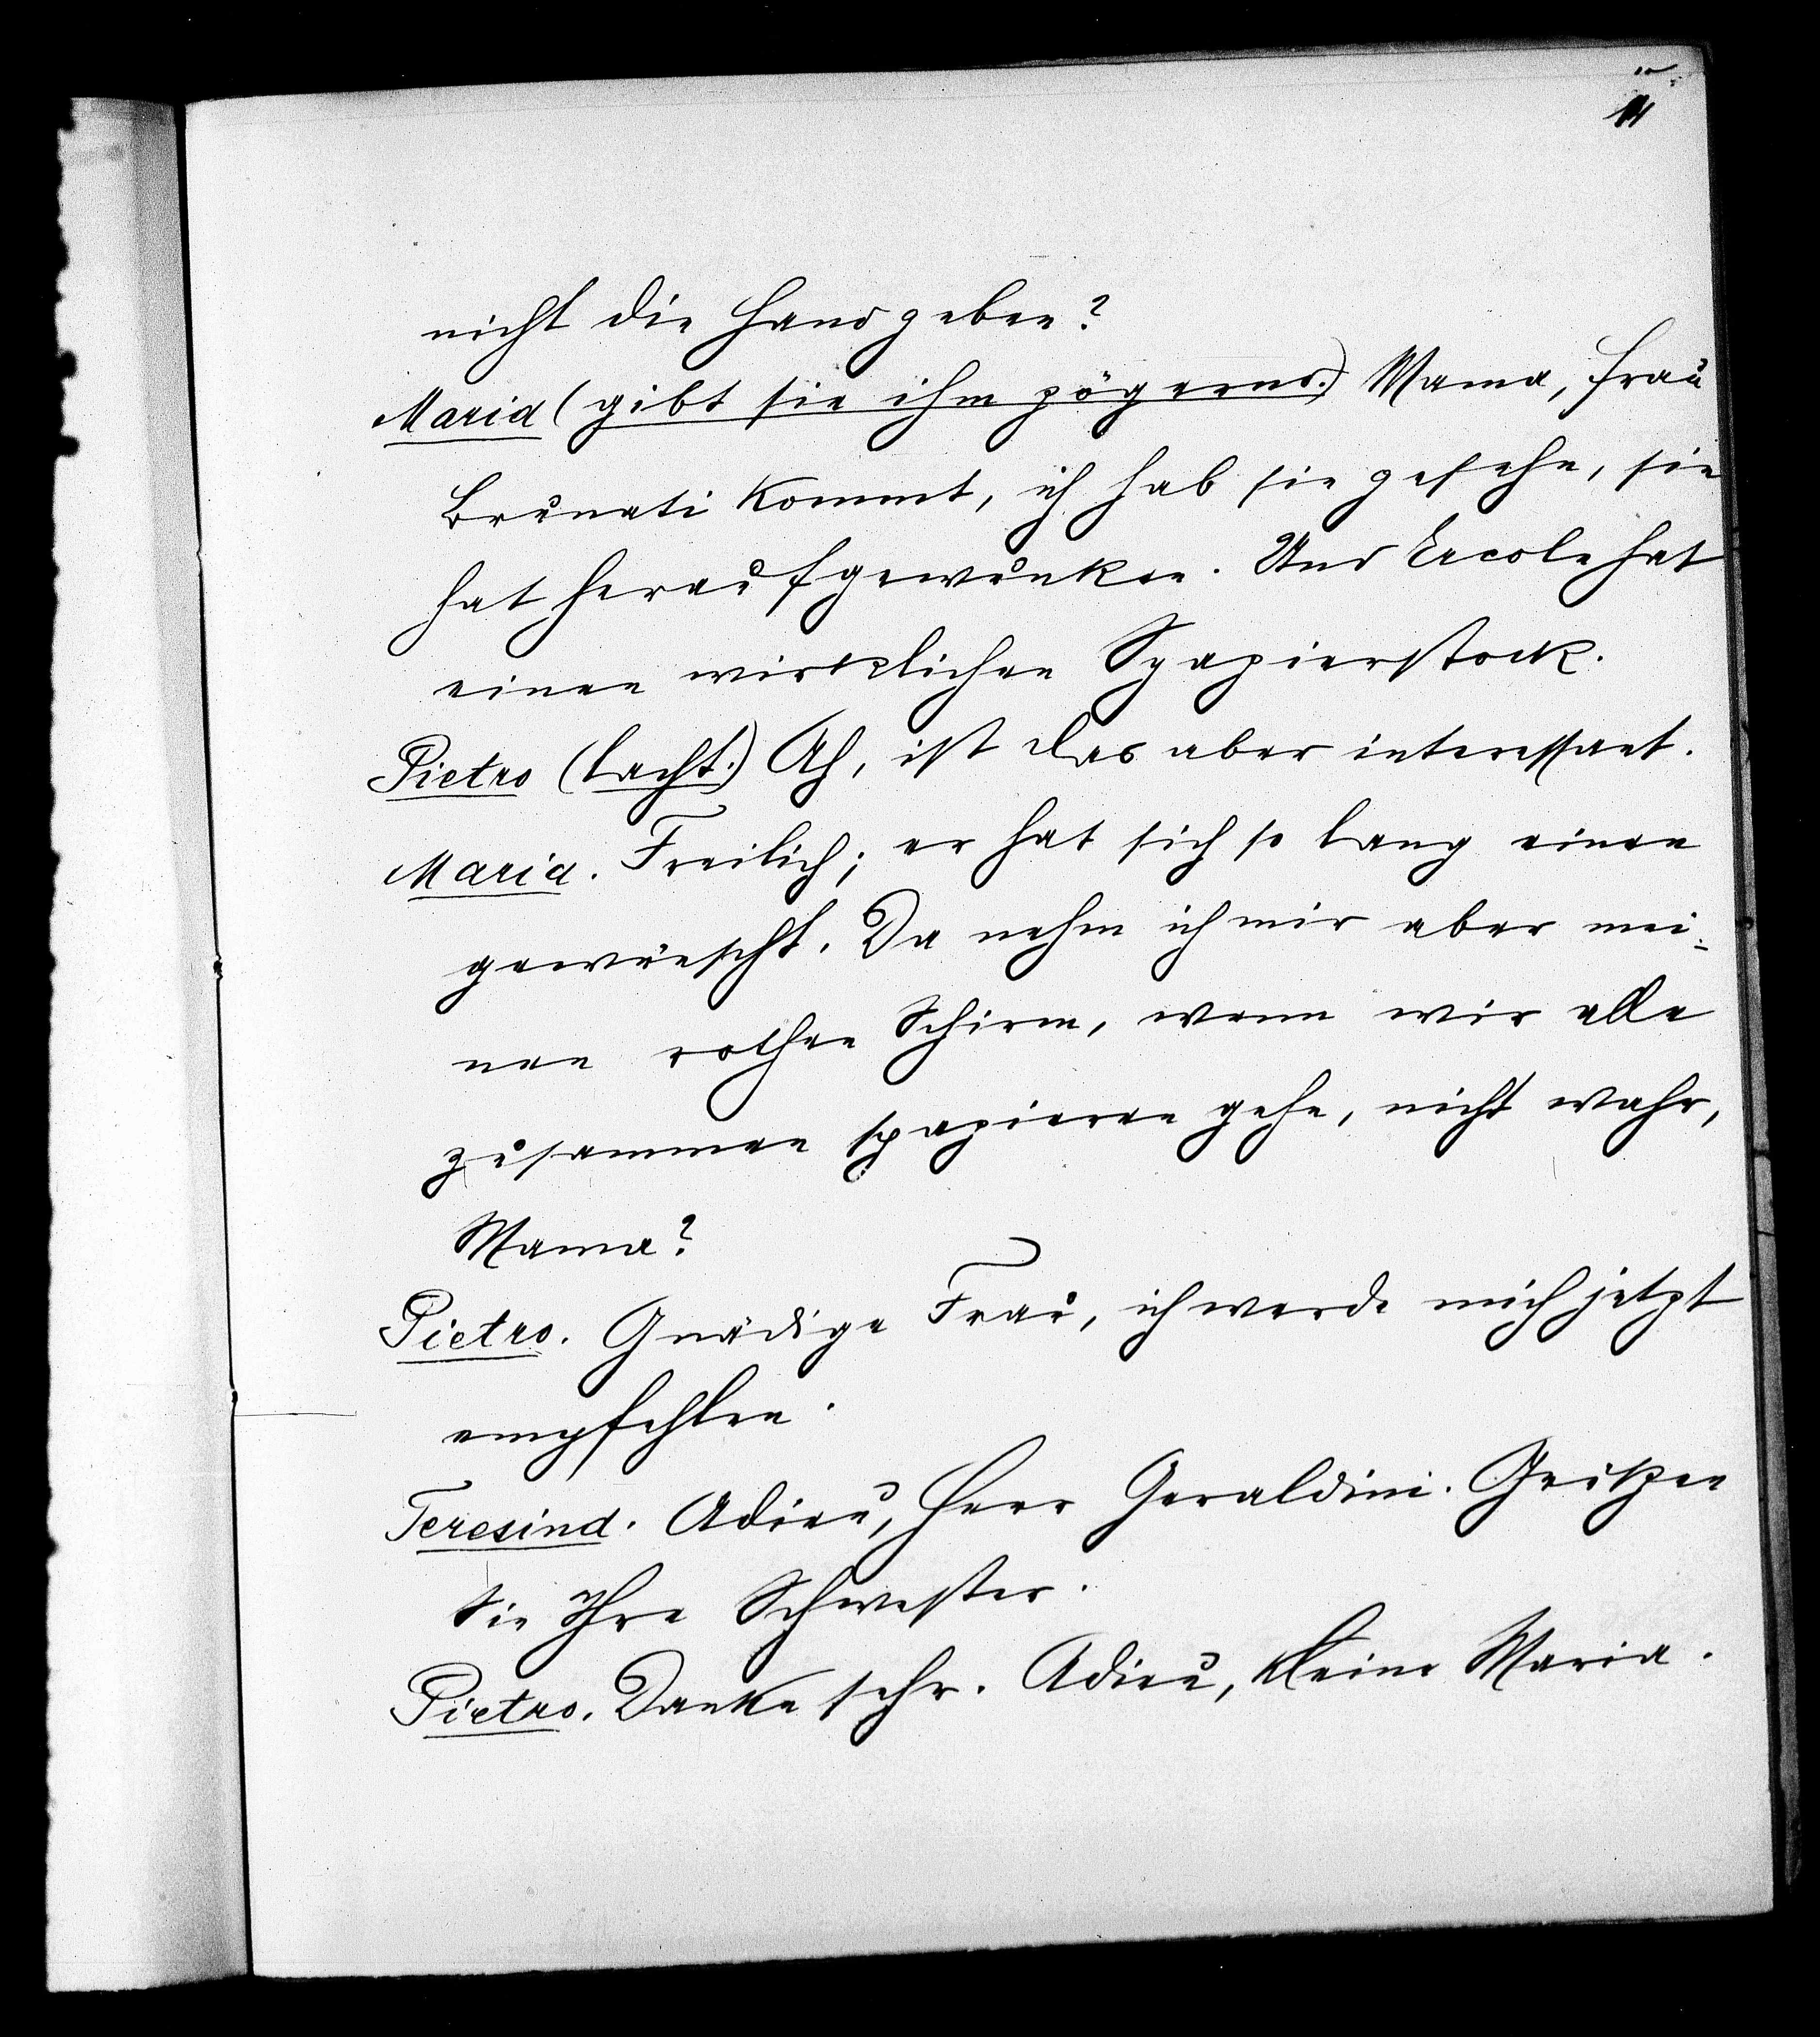 11
nicht die Hand geben?
Maria (gibt sie ihm zögernd.) Mama, Frau
Brunati kommt, ich hab sie gesehn, sie
hat heraufgewunken. Und Ercole hat
einen wirklichen Spazierstock.
Pietro (lacht.) Ah, ist das aber interessant.
Maria. Freilich; er hat sich so lang einen
gewünscht. Da nehm ich mir aber mei-
nen rothen Schirm, wenn wir alle
zusammen spazieren gehn, nicht wahr,
Mama?
Pietro. Gnädige Frau, ich werde mich jetzt
empfehlen.
Teresina. Adieu, Herr Geraldini. Grüßen
Sie Ihre Schwester.
Pietro. Danke sehr. Adieu, kleine Maria.